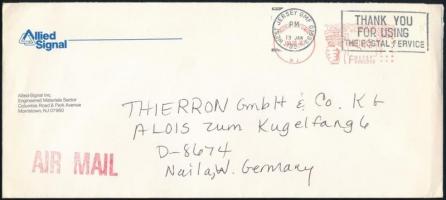 Allied
Signal
Allied-Signal Inc.
Engineered Materials Sector
Columbia Road & Park Avenue
Morristown, NJ 07960
PM
13 JAN
N.J.
THANK YOU
FOR USING
THE POSTAL SERVICE
THIERRON GmbH & Co. KG
ALOIS zum Kugelfang 6
D-8674
Naila, W. Germany
AIR MAIL